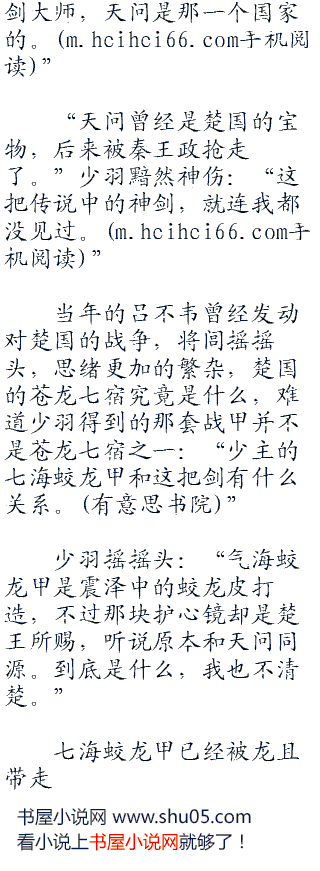 剑大师，天问是那一个国家
的。(m.hcihci66.com手机阅
读)”
“天问曾经是楚国的宝
物，后来被秦王政抢走
了。”少羽黯然神伤：“这
把传说中的神剑，就连我都
没见过。(m.hcihci66.com手
机阅读)”
当年的吕不韦曾经发动
对楚国的战争，将闾摇摇
头，思绪更加的繁杂，楚国
的苍龙七宿究竟是什么，难
道少羽得到的那套战甲并不
是苍龙七宿之一：“少主的
七海蛟龙甲和这把剑有什么
关系。(有意思书院)”
少羽摇摇头：“气海蛟
龙甲是震泽中的蛟龙皮打
造，不过那块护心镜却是楚
王所赐，听说原本和天问同
源。到底是什么，我也不清
楚。”
七海蛟龙甲已经被龙且
带走
书屋小说网 www.shu05.com
看小说上书屋小说网就够了！